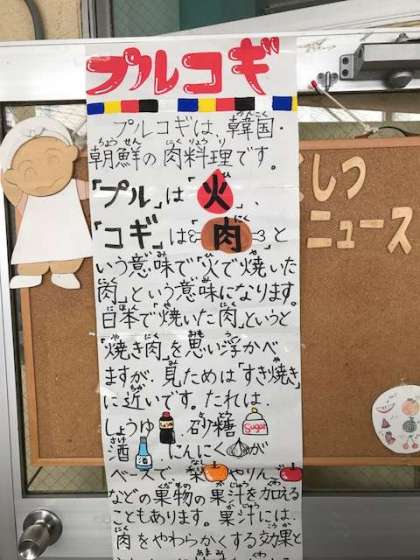 プルコギ
プルコギは、韓国・
朝鮮の肉料理です。
「プル」は「火」、
「コギ」は「肉」と
いう意味で「火で焼いた
肉」という意味になります。
日本で「焼いた肉」というと
「焼き肉」を思い浮かべ
ますが、見ためは「すき焼き」
に近いです。たれは、
しょうゆ、砂糖 Sugar
酒 酒、にんにくが
ベースで、梨やりんご
などの果物の果汁を加える
こともあります。果汁には、
肉をやわらかくする効果と
しつ
ニュース